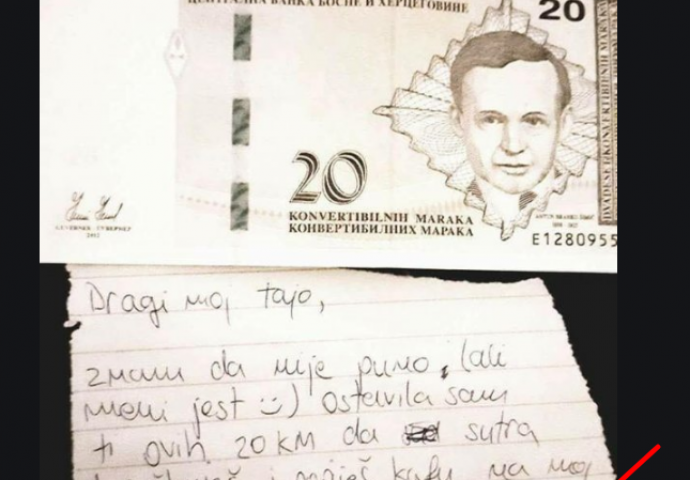 ЦЕНТРАЛНА БАНКА БОСНЕ И ХЕРЦЕГОВИНЕ
20
20
KONVERTIBILNIH MARAKA
КОНВЕРТИБИЛНИХ МАРАКА
E1280955
Dragi moj tajo,
znam da nije puno, (ali
meni jest :)) ostavila sam
ti ovih 20 KM da sutra
i popiješ kafu na moj